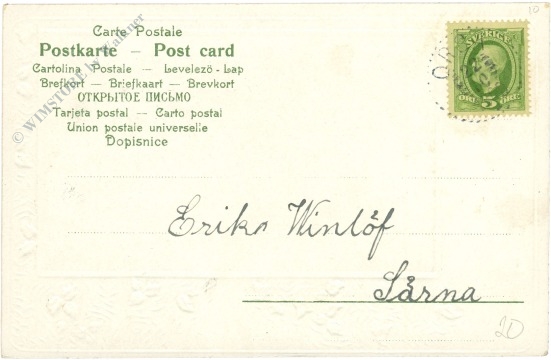 Carte Postale
Postkarte – Post card
Cartolina Postale – Levelező-Lap
Brefkort – Briefkaart – Brevkort
ОТКРЫТОЕ ПИСЬМО
Tarjeta postal – Carto postal
Union postale universelle
Dopisnice
© WIMSTORE by Wallner
10
SVERIGE
ÖRE 5 ÖRE
Erika Winlöf
Särna
20